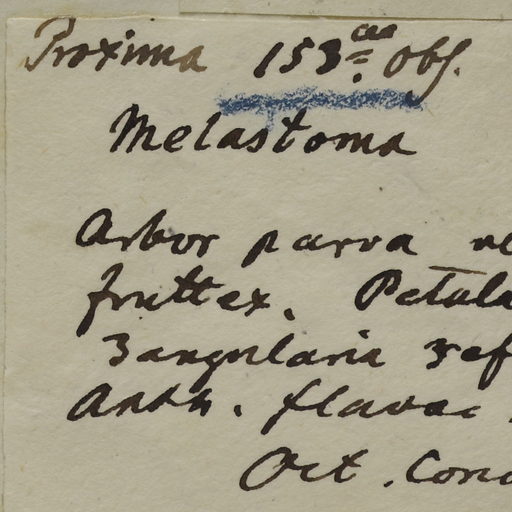 Proxima 153.ae Obs.
Melastoma
Arbor parva
fruttex. Petala
3angularia
Anth. flavae
Oct.